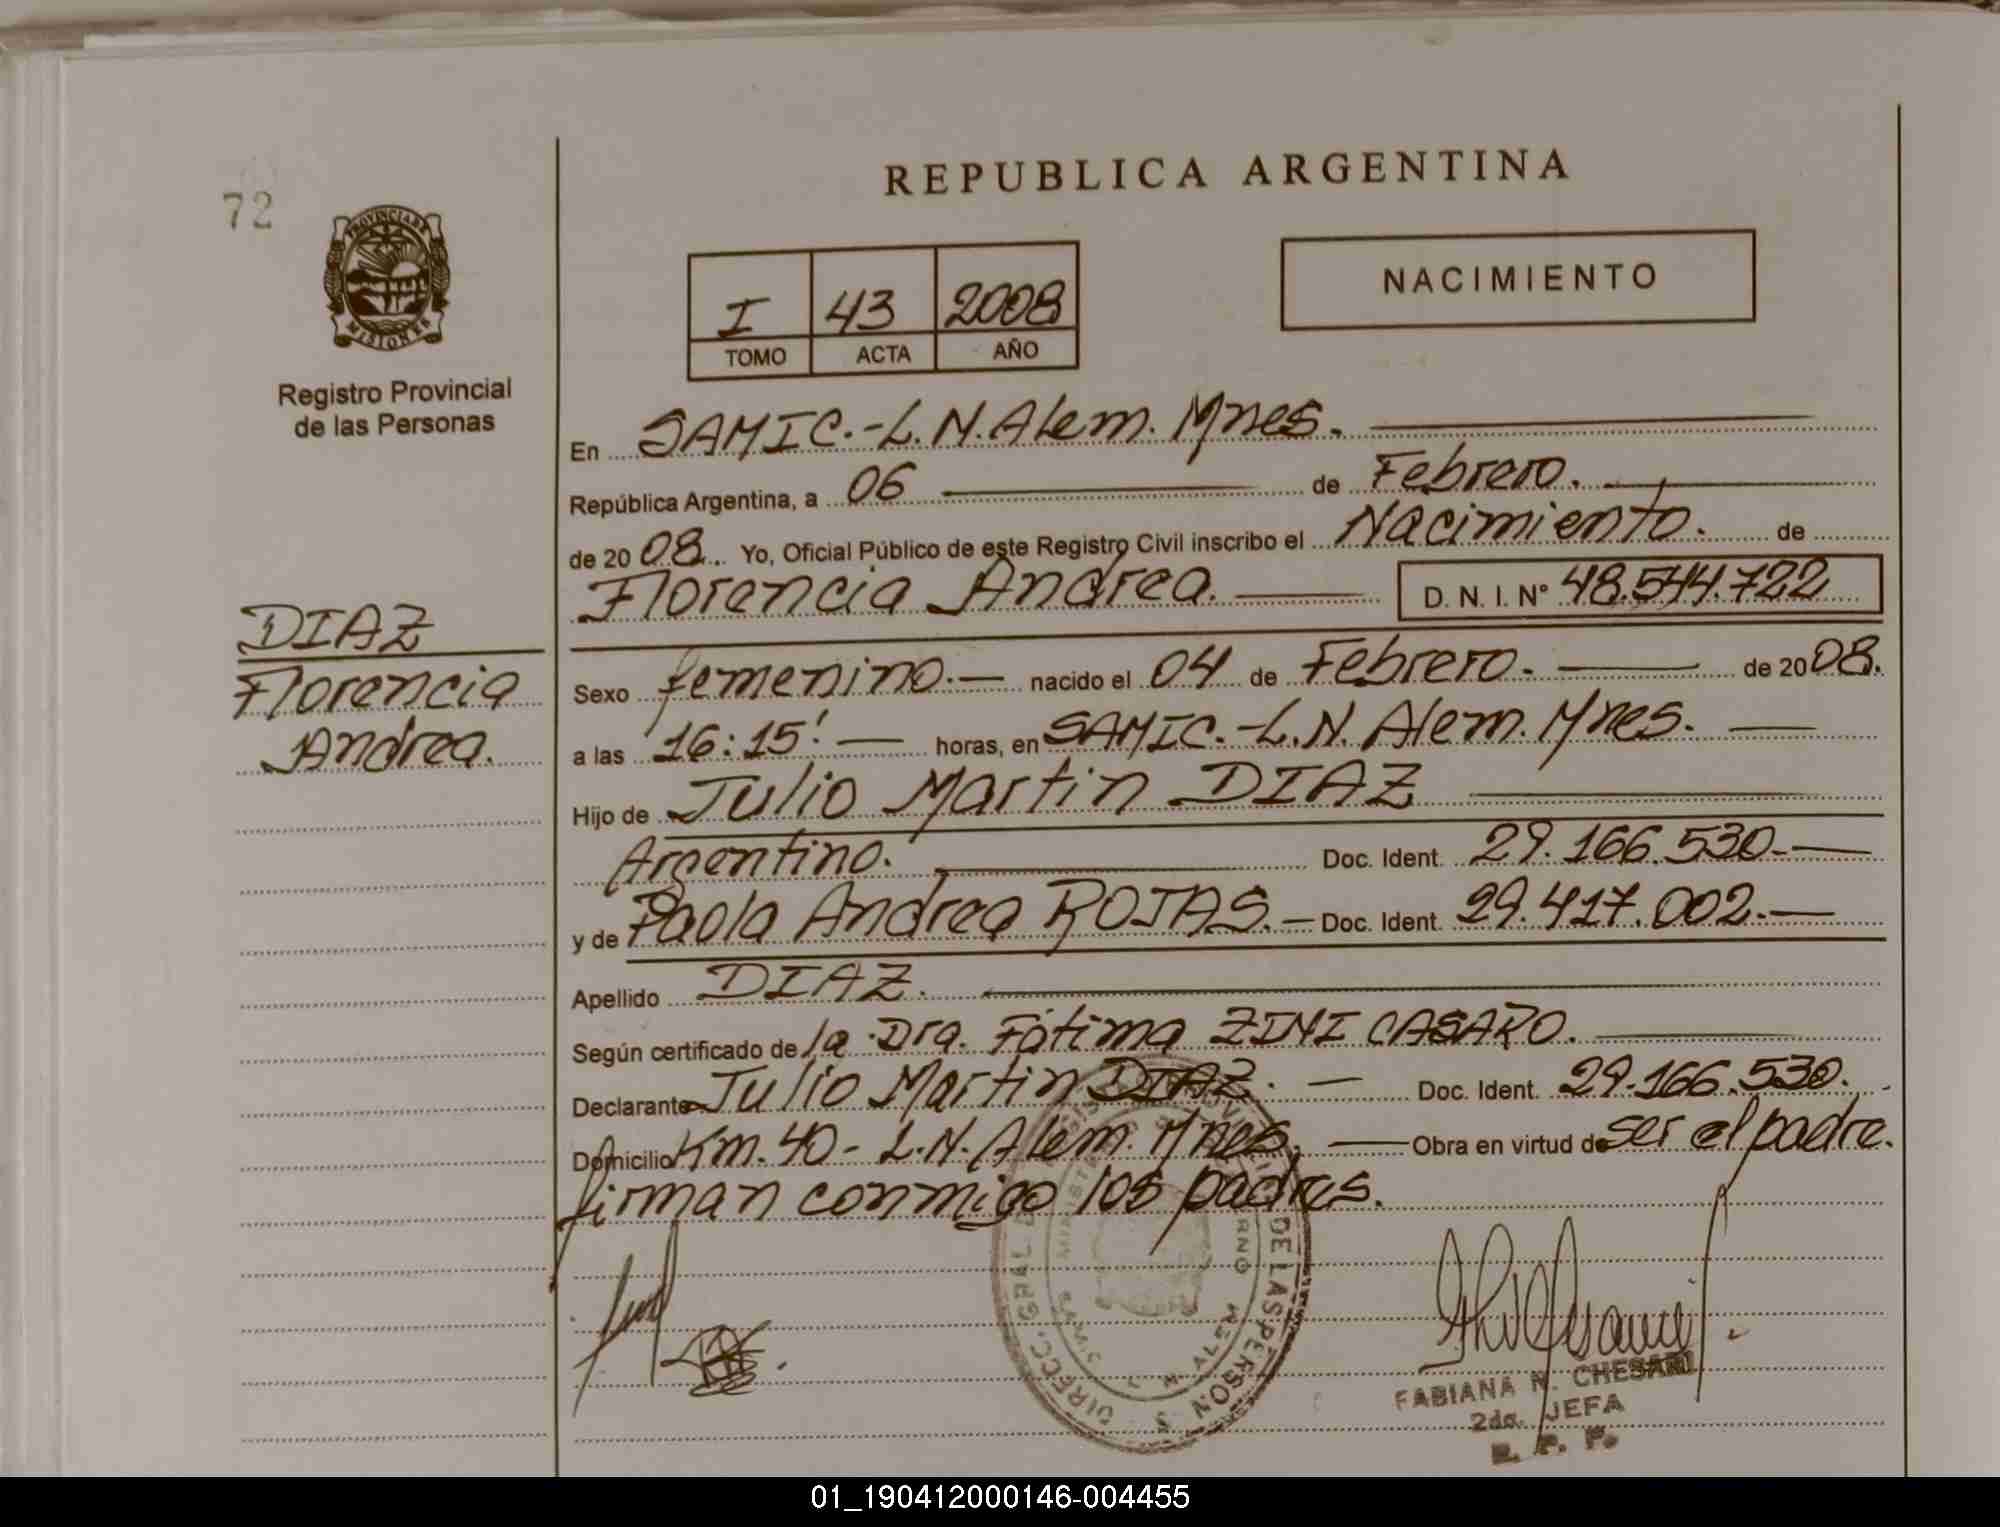 72
PROVINCIA DE
MISIONES
Registro Provincial
de las Personas
DIAZ
Florencia
Andrea.
REPUBLICA ARGENTINA
I 43 2008
TOMO ACTA AÑO
NACIMIENTO
En SAMIC.-L.N.Alem. Mnes.
República Argentina, a 06 de Febrero.
de 20 08. Yo, Oficial Público de este Registro Civil inscribo el Nacimiento. de
Florencia Andrea. D. N. I. Nº 48.544.722
Sexo femenino.- nacido el 04 de Febrero. de 20 08.
a las 16:15' horas, en SAMIC.-L.N. Alem. Mnes.
Hijo de Julio Martin DIAZ
Argentino. Doc. Ident. 29.166.530.-
y de Paola Andrea ROJAS.- Doc. Ident. 29.417.002.-
Apellido DIAZ.
Según certificado de la Dra. Fátima ZINI CASARO.
Declarante Julio Martin DIAZ. - Doc. Ident. 29.166.530.
Domicilio Km. 40 - L.N. Alem. Mnes. Obra en virtud de ser el padre.
firman conmigo los padres.
DIRECC. GRAL. DE LAS PERSON S
MINISTE
SAMIC
L N ALEM
FABIANA N. CHESARI
2da. JEFA
R. P. P.
01_190412000146-004455